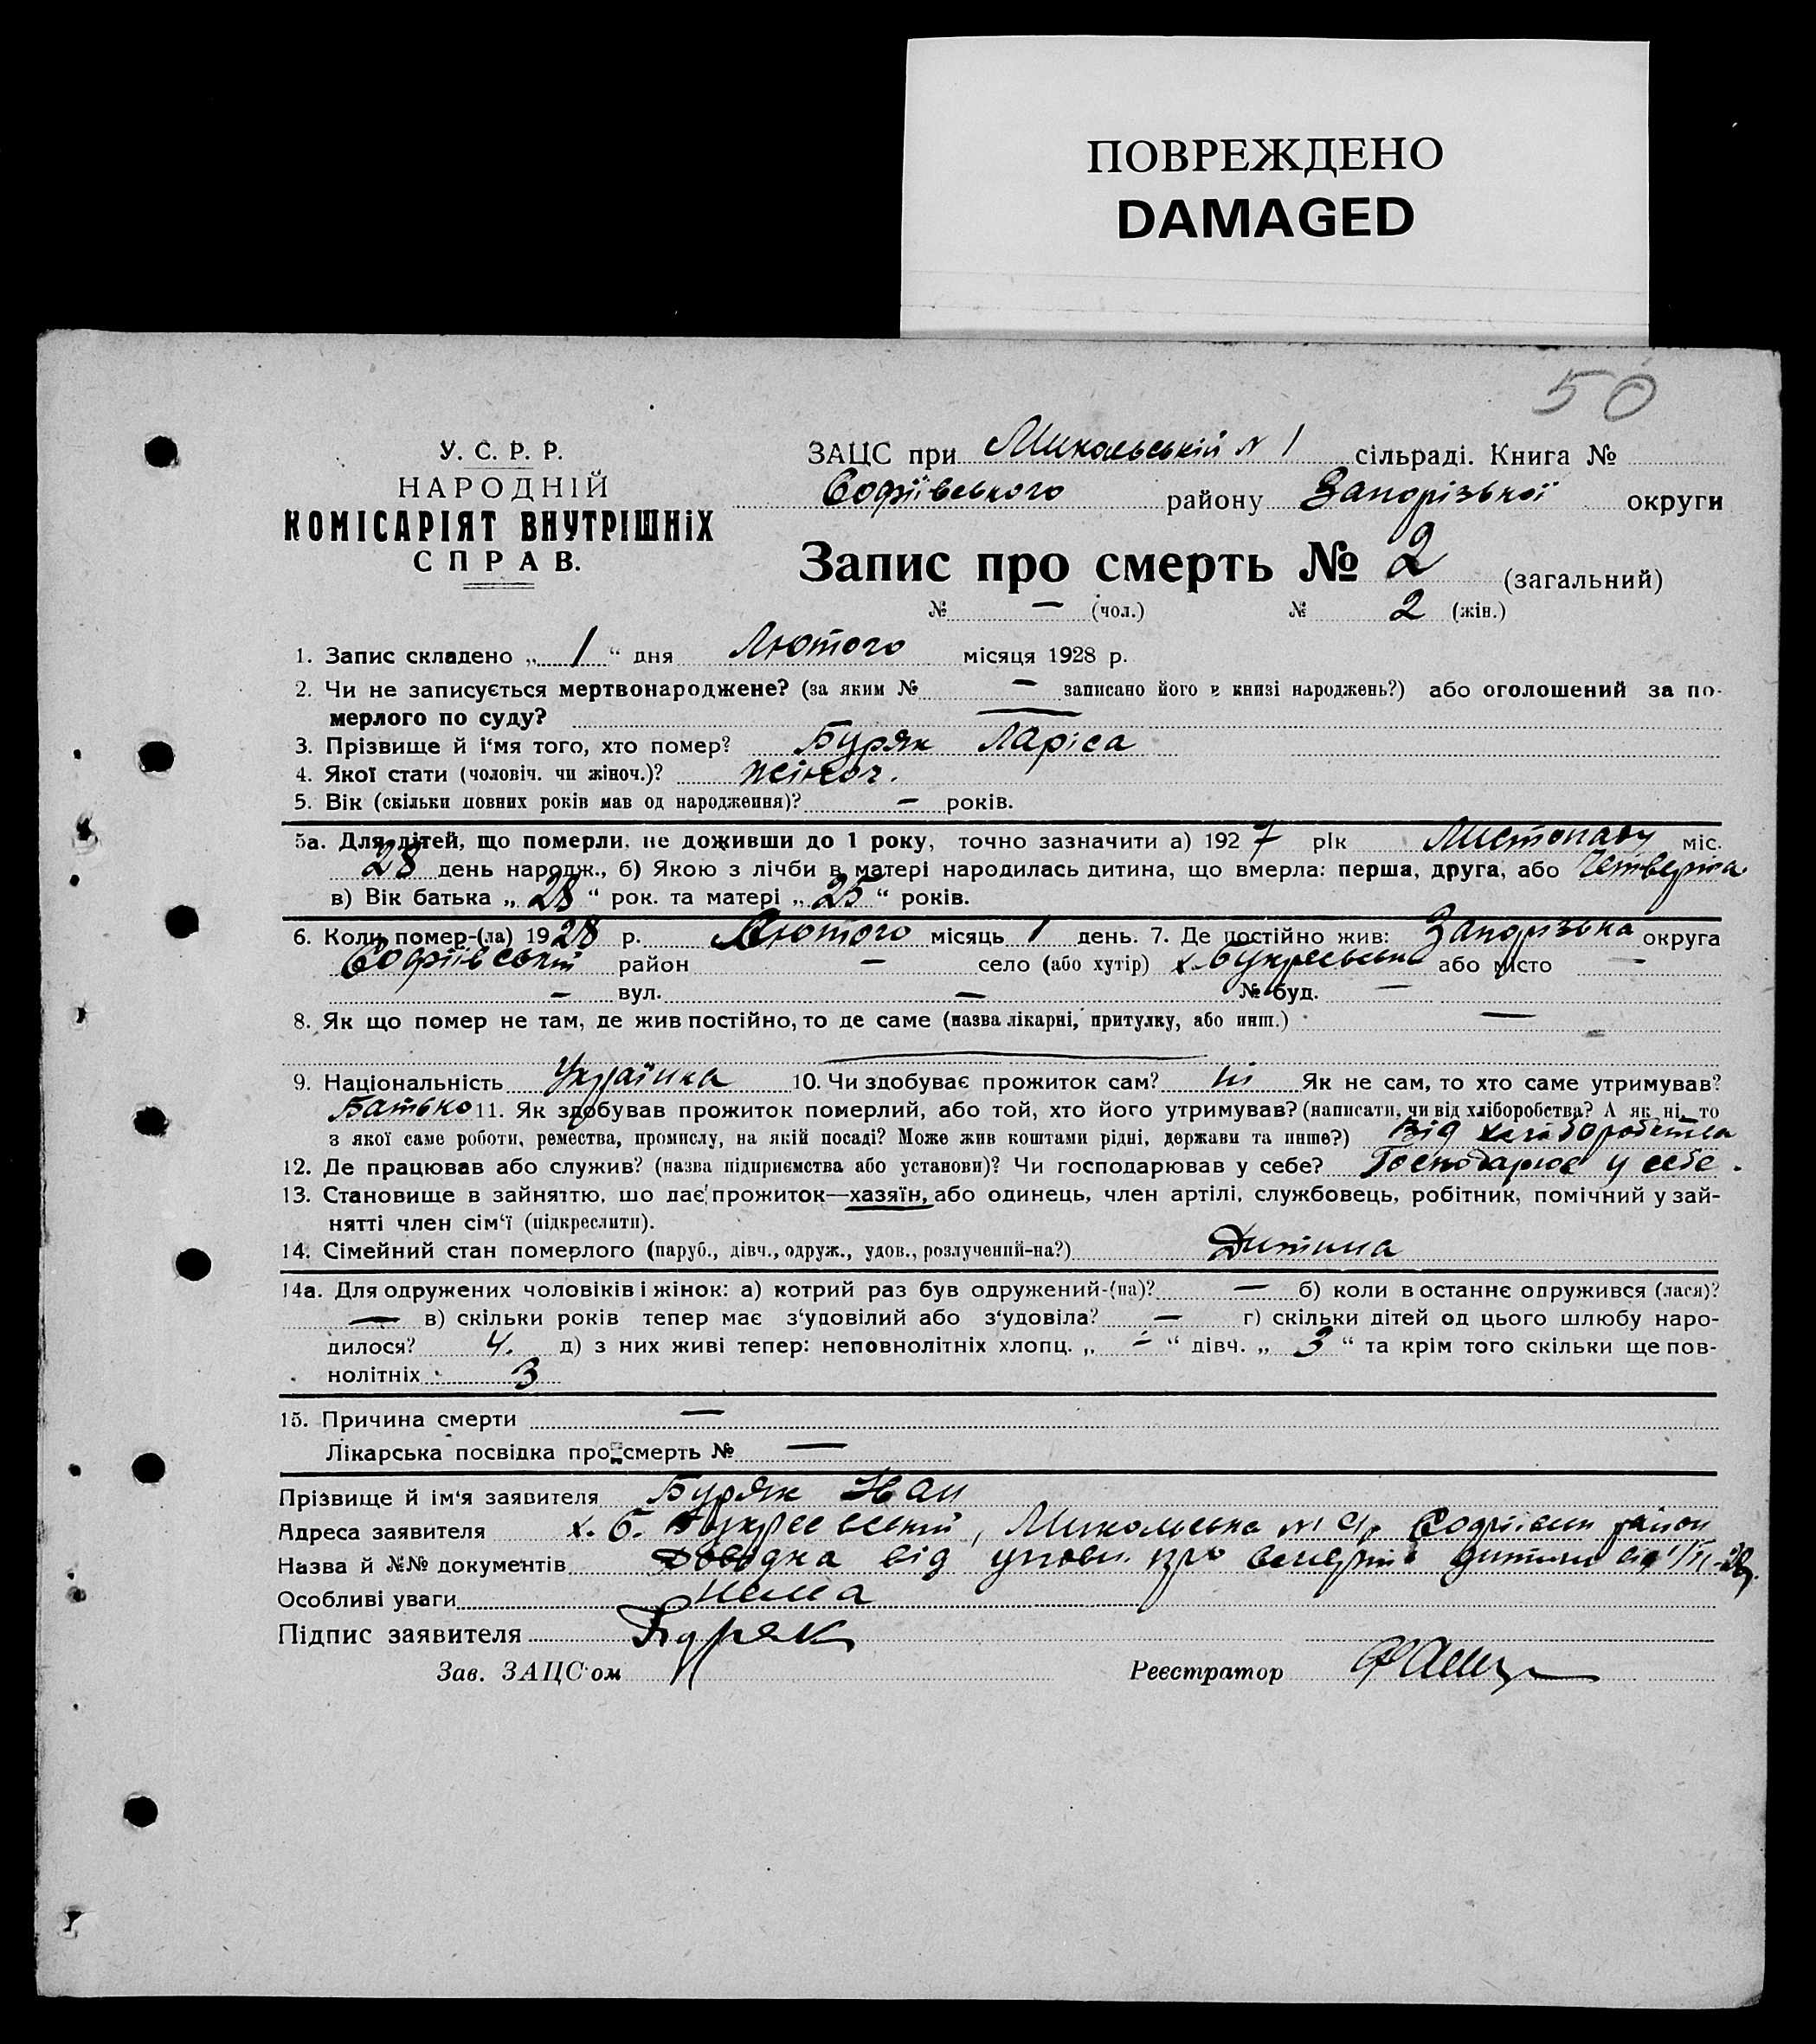 ПОВРЕЖДЕНО
DAMAGED
50
У. С. Р. Р.
НАРОДНІЙ
КОМІСАРІЯТ ВНУТРІШНіХ
СПРАВ.
ЗАЦС при Микольській № 1 сільраді. Книга №
Софіївського району Запорізької округи
Запис про смерть № 2 (загальний)
№ — (чол.) № 2 (жін.)
1. Запис складено „ 1 “ дня Лютого місяця 1928 р.
2. Чи не записується мертвонароджене? (за яким № — записано його в книзі народжень?) або оголошений за по-
мерлого по суду? —
3. Прізвище й і'мя того, хто помер? Буряк Лариса
4. Якої стати (чоловіч. чи жіноч.)? жіноч.
5. Вік (скільки повних років мав од народження)? — років.
5а. Для дітей, що померли, не доживши до 1 року, точно зазначити а) 1927 рік Листопаду міс.
28 день народж., б) Якою з лічби в матері народилась дитина, що вмерла: перша, друга, або Четверта
в) Вік батька „ 28 “ рок. та матері „ 25 “ років.
6. Коли помер-(ла) 1928 р. Лютого місяць 1 день. 7. Де постійно жив: Запорізька округа
Софіївський район — село (або хутір) х. або місто —
— вул. — № буд. —
8. Як що помер не там, де жив постійно, то де саме (назва лікарні, притулку, або инш.) —
9. Національність Українка 10. Чи здобуває прожиток сам? ні Як не сам, то хто саме утримував?
Батько 11. Як здобував прожиток померлий, або той, хто його утримував? (написати, чи від хліборобства? А як ні, то
з якої саме роботи, ремества, промислу, на якій посаді? Може жив коштами рідні, держави та инше?) Від хліборобства
12. Де працював або служив? (назва підприємства або установи)? Чи господарював у себе? Господарює у себе.
13. Становище в зайняттю, що дає прожиток—хазяїн, або одинець, член артілі, службовець, робітник, помічний у зай-
нятті член сім'ї (підкреслити).
14. Сімейний стан померлого (паруб., дівч., одруж., удов., розлучений-на?) Дитина
14а. Для одружених чоловіків і жінок: а) котрий раз був одружений-(на)? — б) коли в останнє одружився (лася)?
— в) скільки років тепер має з'удовілий або з'удовіла? — г) скільки дітей од цього шлюбу наро-
дилося? 4. д) з них живі тепер: неповнолітніх хлопц. „ — “ дівч. „ 3 “ та крім того скільки ще пов-
нолітніх 3
15. Причина смерти —
Лікарська посвідка про смерть № —
Прізвище й ім'я заявителя Буряк Іван
Адреса заявителя х. Микольська № 1 Софіївськ район
Назва й №№ документів Довідка від уповн. про смерть дитини від 1/II-28р.
Особливі уваги нема
Підпис заявителя Буряк
Зав. ЗАЦС'ом Реєстратор